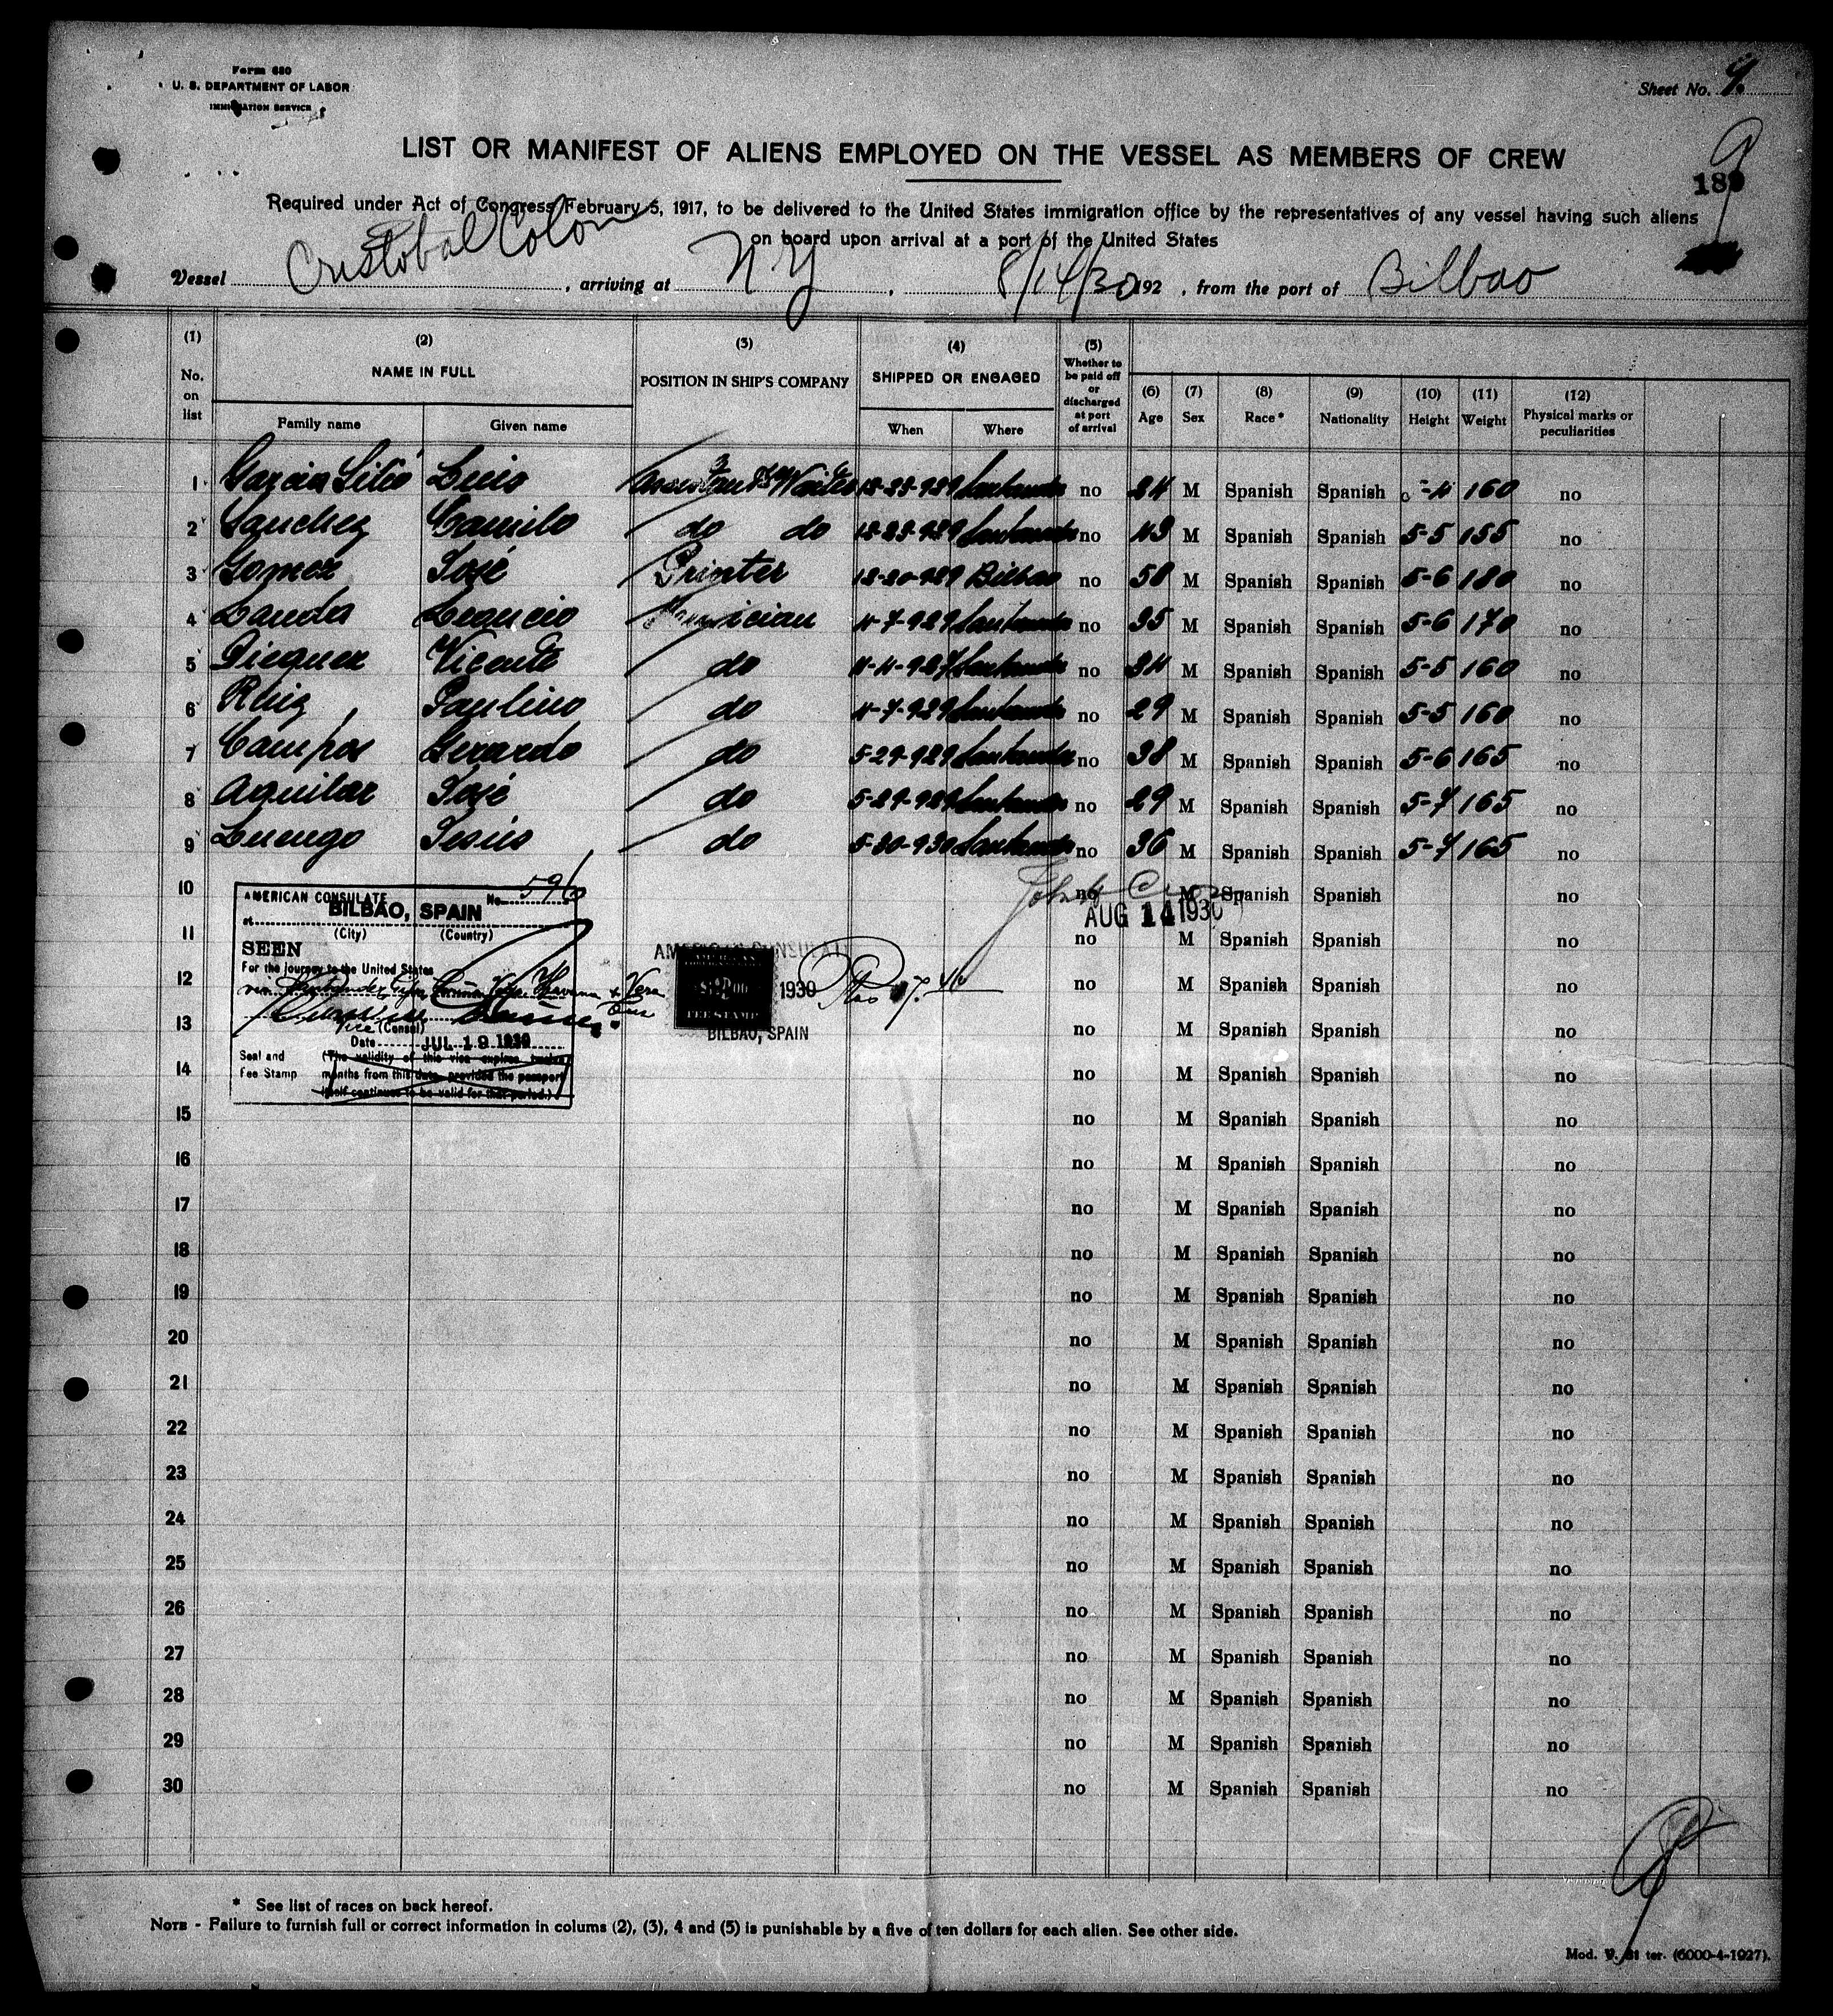 Form 680
U. S. DEPARTMENT OF LABOR
IMMIGRATION SERVICE
Sheet No. 9.
LIST OR MANIFEST OF ALIENS EMPLOYED ON THE VESSEL AS MEMBERS OF CREW
9
Required under Act of Congress February 5, 1917, to be delivered to the United States immigration office by the representatives of any vessel having such aliens
on board upon arrival at a port of the United States
Vessel Cristobal Colon, arriving at N Y, 8/14/30 192 , from the port of Bilbao
(1) (2) (3) (4) (5)
No. on list NAME IN FULL POSITION IN SHIP'S COMPANY SHIPPED OR ENGAGED Whether to be paid off or discharged at port of arrival (6) Age (7) Sex (8) Race* (9) Nationality (10) Height (11) Weight (12) Physical marks or peculiarities
Family name Given name When Where
1 Garcia Luis Waiter Santander no M Spanish Spanish 160 no
2 Sanchez Camilo do do Santander no 43 M Spanish Spanish 5-5 155 no
3 Gomez José Printer Bilbao no 50 M Spanish Spanish 5-6 180 no
4 Landa Leoncio Musician Santander no 35 M Spanish Spanish 5-6 170 no
5 Dieguez Vicente do Santander no 34 M Spanish Spanish 5-5 160 no
6 Ruiz Paulino do Santander no 29 M Spanish Spanish 5-5 160 no
7 Campos Gerardo do 5-29-929 Santander no 38 M Spanish Spanish 5-6 165 no
8 Aguilar José do 5-29-929 Santander no 29 M Spanish Spanish 5-7 165 no
9 Luengo Jesús do 5-30-930 Santander no 36 M Spanish Spanish 5-7 165 no
10 no M Spanish Spanish no
AUG 14 1930
AMERICAN CONSULATE No. 596
at BILBAO, SPAIN
(City) (Country)
SEEN
For the journey to the United States
via Santander Gijon Coruña Vigo Havana & Vera Cruz
Vice (Consul)
Date JUL 19 1930
Seal and Fee Stamp (The validity of this visa expires twelve months from this date, provided the passport itself continues to be valid for that period.)
AMERICAN CONSULATE
AMERICAN
$2.00
FEE STAMP
1930
BILBAO, SPAIN
11 no M Spanish Spanish no
12 no M Spanish Spanish no
13 no M Spanish Spanish no
14 no M Spanish Spanish no
15 no M Spanish Spanish no
16 no M Spanish Spanish no
17 no M Spanish Spanish no
18 no M Spanish Spanish no
19 no M Spanish Spanish no
20 no M Spanish Spanish no
21 no M Spanish Spanish no
22 no M Spanish Spanish no
23 no M Spanish Spanish no
24 no M Spanish Spanish no
25 no M Spanish Spanish no
26 no M Spanish Spanish no
27 no M Spanish Spanish no
28 no M Spanish Spanish no
29 no M Spanish Spanish no
30 no M Spanish Spanish no
* See list of races on back hereof.
NOTE - Failure to furnish full or correct information in colums (2), (3), 4 and (5) is punishable by a five of ten dollars for each alien. See other side.
Mod. ter. (6000-4-1927).